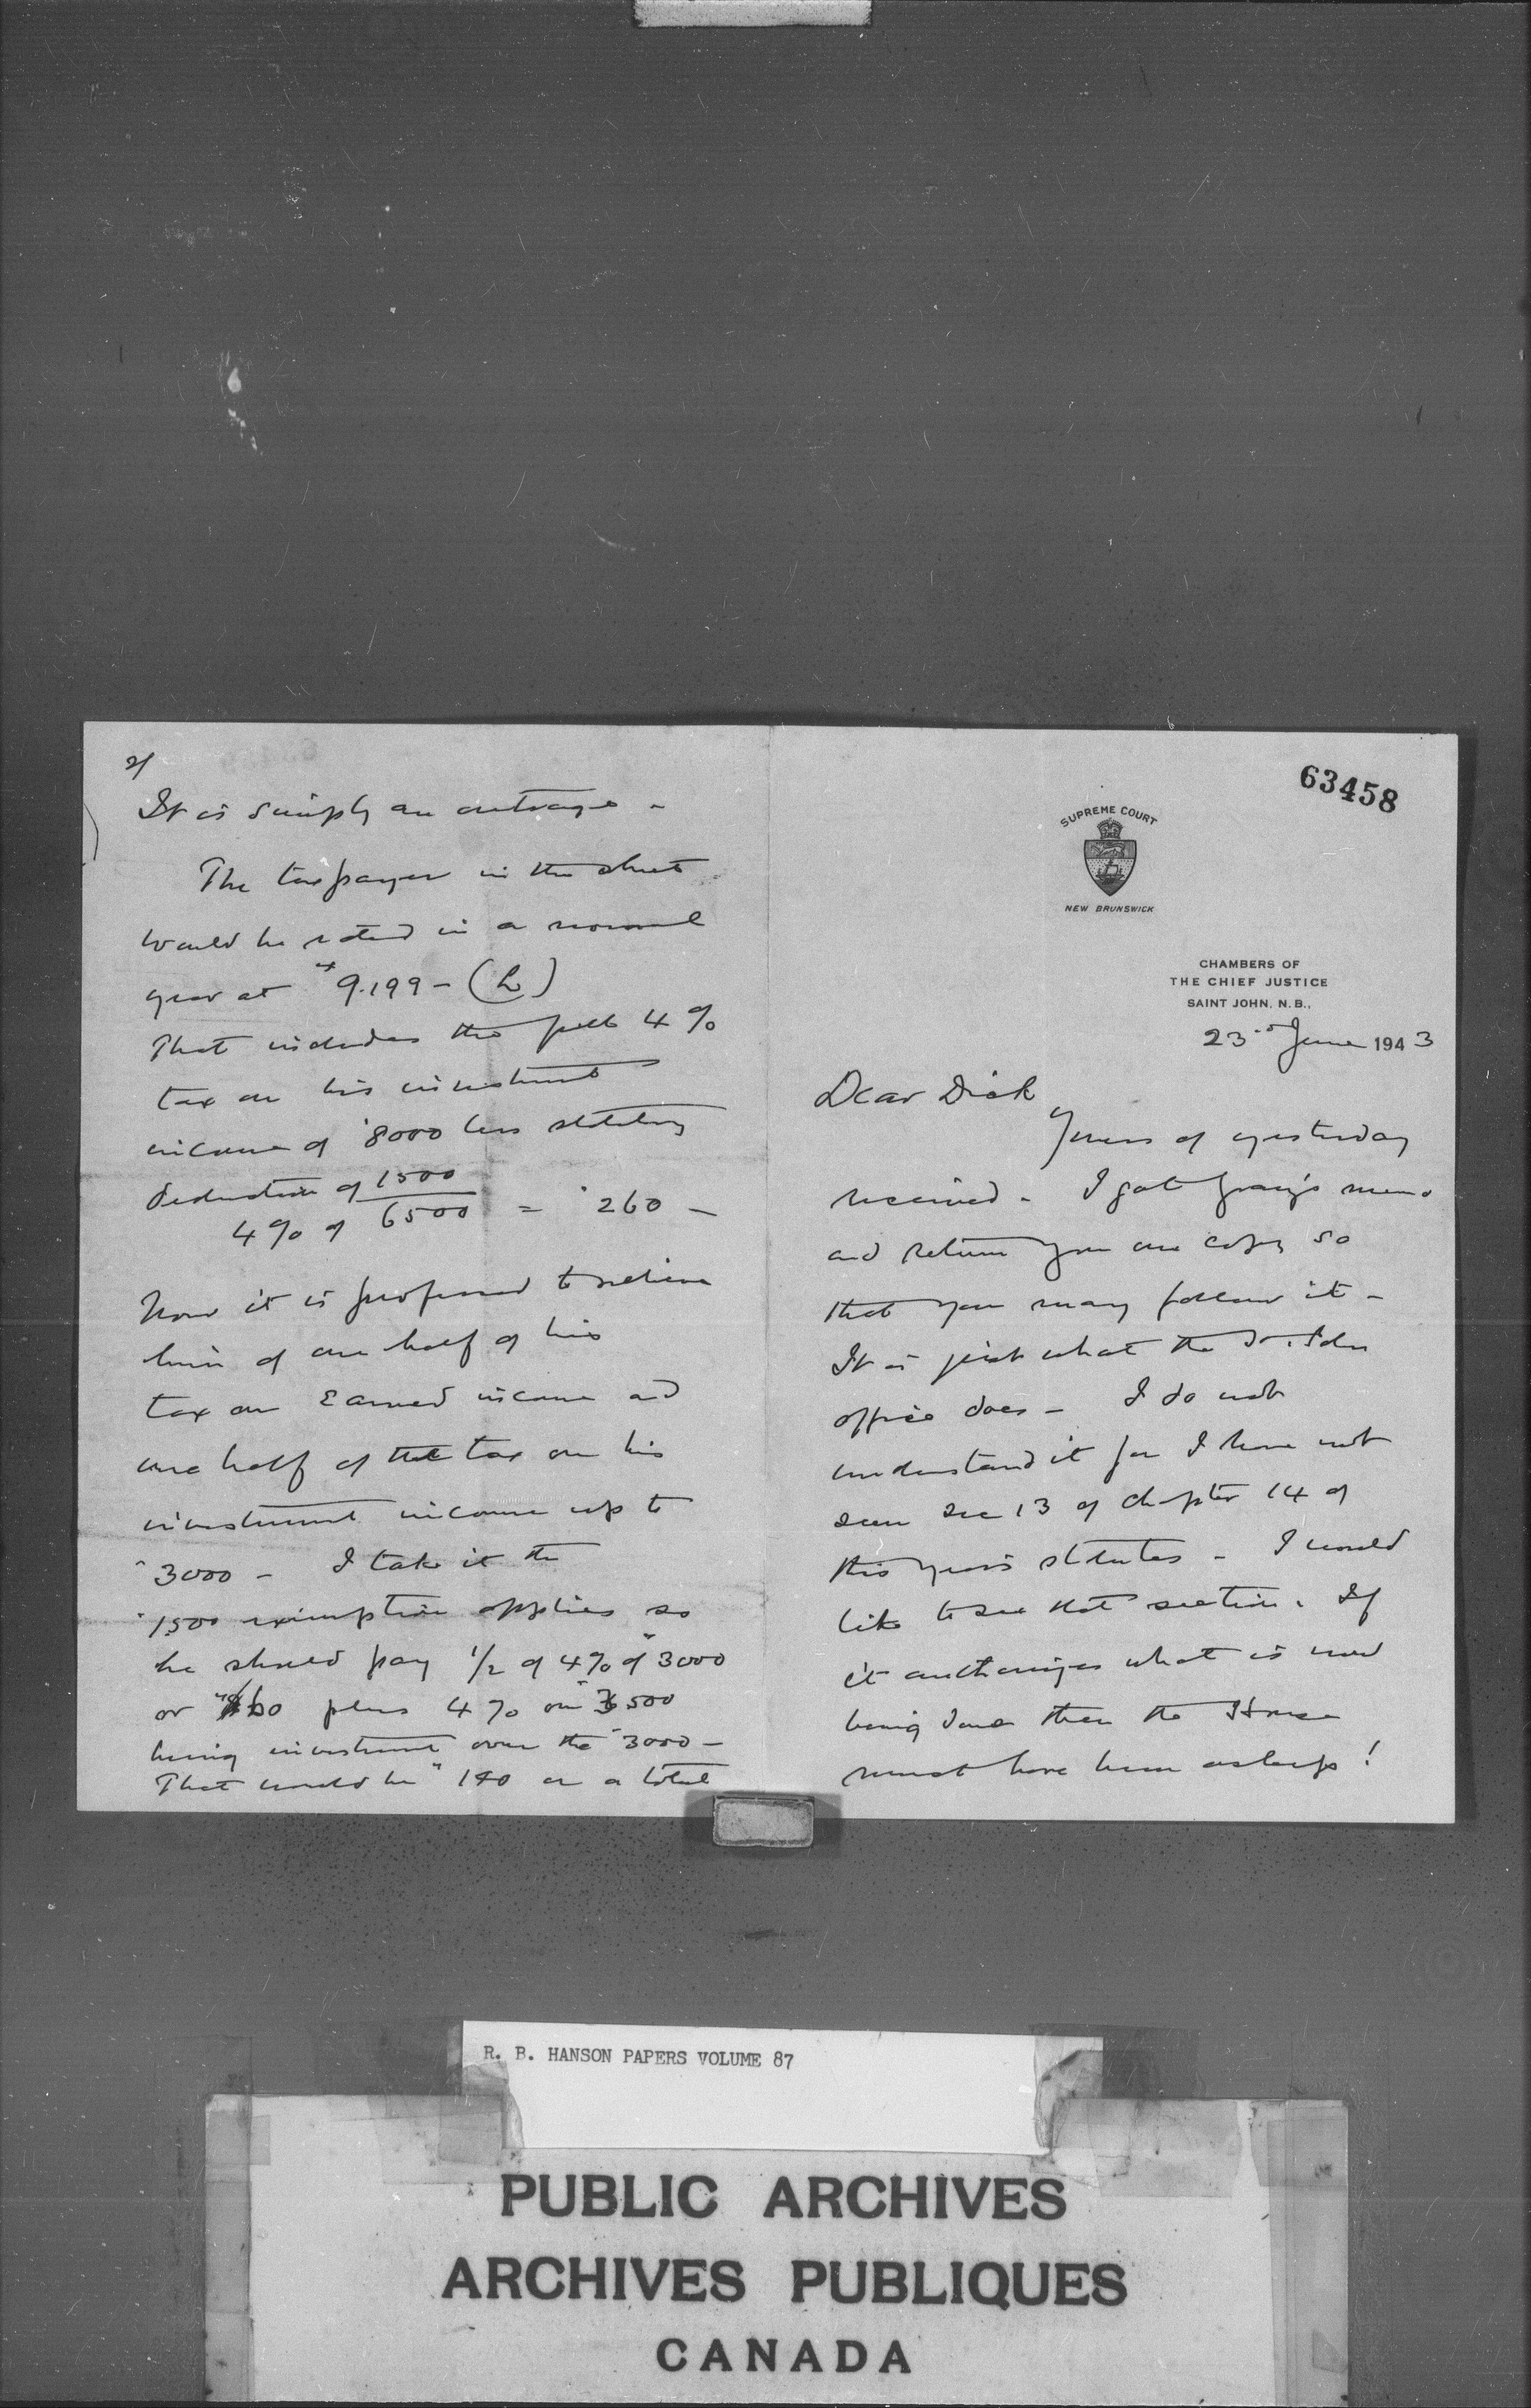 63458
SUPREME COURT
NEW BRUNSWICK
CHAMBERS OF
THE CHIEF JUSTICE
SAINT JOHN, N. B.,
23rd June 1943
Dear Dick
Yours of yesterday
received - I got Gray's memo
and return you one copy so
that you may follow it -
It is just what the St. John
office does - I do not
understand it for I have not
seen sec 13 of chapter 14 of
this year's statutes - I would
like to see that section. If
it authorizes what is now
being done then the House
must have been asleep!
2/
It is simply an outrage -
The taxpayer in the sheet
would be rated in a normal
year at $9.199 - (L)
That includes the full 4%
tax on his investment
income of $8000 less statutory
deduction of 1500
4% of 6500 = $260 -
Now it is proposed to relieve
him of one half of his
tax on earned income and
one half of the tax on his
investment income up to
$3000 - I take it the
$1500 exemption applies so
he should pay 1/2 of 4% of $3000
or $60 plus 4% on $3500
being investment over the $3000 -
That would be $140 or a total
R. B. HANSON PAPERS VOLUME 87
PUBLIC ARCHIVES
ARCHIVES PUBLIQUES
CANADA